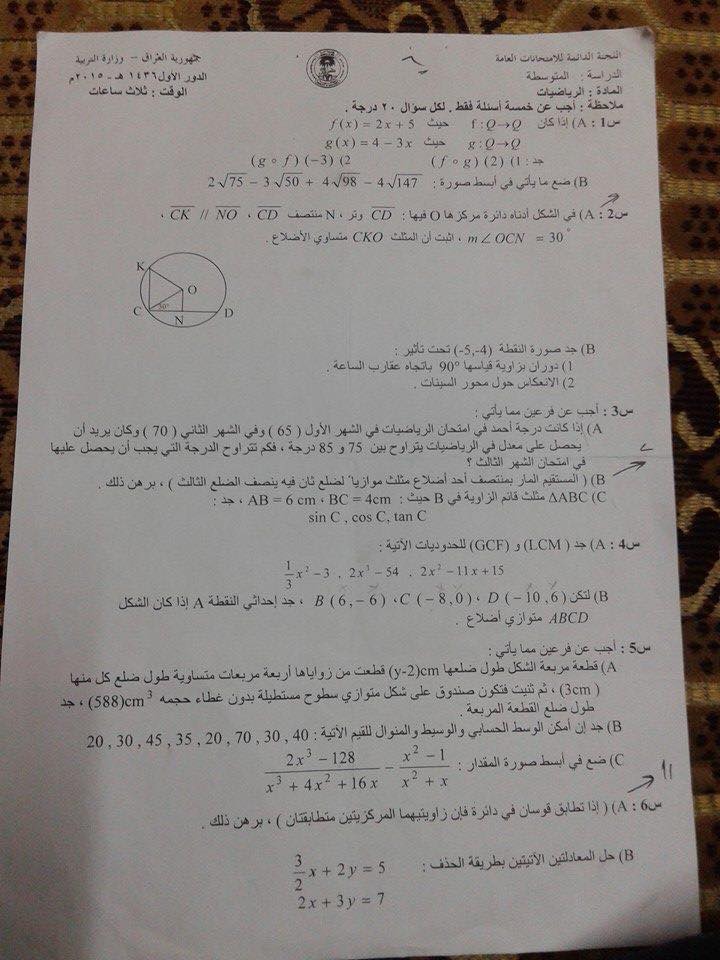 اللجنة الدائمة للامتحانات العامة
الدراسة : المتوسطة
المادة : الرياضيات
جمهورية العراق - وزارة التربية
الدور الأول ١٤٣٦ هـ - ٢٠١٥م
الوقت : ثلاث ساعات
ملاحظة : أجب عن خمسة أسئلة فقط . لكل سؤال ٢٠ درجة .
س1 : A) إذا كان f : Q→Q حيث f(x) = 2x + 5
g : Q→Q حيث g(x) = 4 − 3x
جد : 1) (f ∘ g) (2) 2) (g ∘ f) (−3)
B) ضع ما يأتي في أبسط صورة : 2√75 − 3√50 + 4√98 − 4√147
س2 : A) في الشكل أدناه دائرة مركزها O فيها : CD وتر ، N منتصف CD ، CK // NO ،
m∠OCN = 30° ، اثبت أن المثلث CKO متساوي الأضلاع .
K
O
C 30° D
N
B) جد صورة النقطة (-5,-4) تحت تأثير :
1) دوران بزاوية قياسها 90° باتجاه عقارب الساعة .
2) الانعكاس حول محور السينات .
س3 : أجب عن فرعين مما يأتي :
A) إذا كانت درجة أحمد في امتحان الرياضيات في الشهر الأول ( 65 ) وفي الشهر الثاني ( 70 ) وكان يريد أن
يحصل على معدل في الرياضيات يتراوح بين 75 و 85 درجة ، فكم تتراوح الدرجة التي يجب أن يحصل عليها
في امتحان الشهر الثالث ؟
B) ( المستقيم المار بمنتصف أحد أضلاع مثلث موازياً لضلع ثان فيه ينصف الضلع الثالث ) ، برهن ذلك .
C) ΔABC مثلث قائم الزاوية في B حيث : AB = 6 cm ، BC = 4cm ، جد :
sin C , cos C, tan C
س4 : A) جد ( LCM ) و (GCF) للحدوديات الآتية :
1/3 x² − 3 , 2x³ − 54 , 2x² − 11x + 15
B) لتكن D ( − 10 , 6 ) ، C ( − 8 , 0 ) ، B ( 6 , − 6 ) ، جد إحداثي النقطة A إذا كان الشكل
ABCD متوازي أضلاع .
س5 : أجب عن فرعين مما يأتي :
A) قطعة مربعة الشكل طول ضلعها (y-2)cm قطعت من زواياها أربعة مربعات متساوية طول ضلع كل منها
( 3cm ) ، ثم ثنيت فتكون صندوق على شكل متوازي سطوح مستطيلة بدون غطاء حجمه (588)cm³ ، جد
طول ضلع القطعة المربعة .
B) جد إن أمكن الوسط الحسابي والوسيط والمنوال للقيم الآتية : 40 , 30 , 70 , 20 , 35 , 45 , 30 , 20
C) ضع في أبسط صورة المقدار : (2x³ − 128)/(x³ + 4x² + 16x) − (x² − 1)/(x² + x)
11
س6 : A) ( إذا تطابق قوسان في دائرة فإن زاويتيهما المركزيتين متطابقتان ) ، برهن ذلك .
B) حل المعادلتين الآتيتين بطريقة الحذف : 3/2 x + 2y = 5
2x + 3y = 7